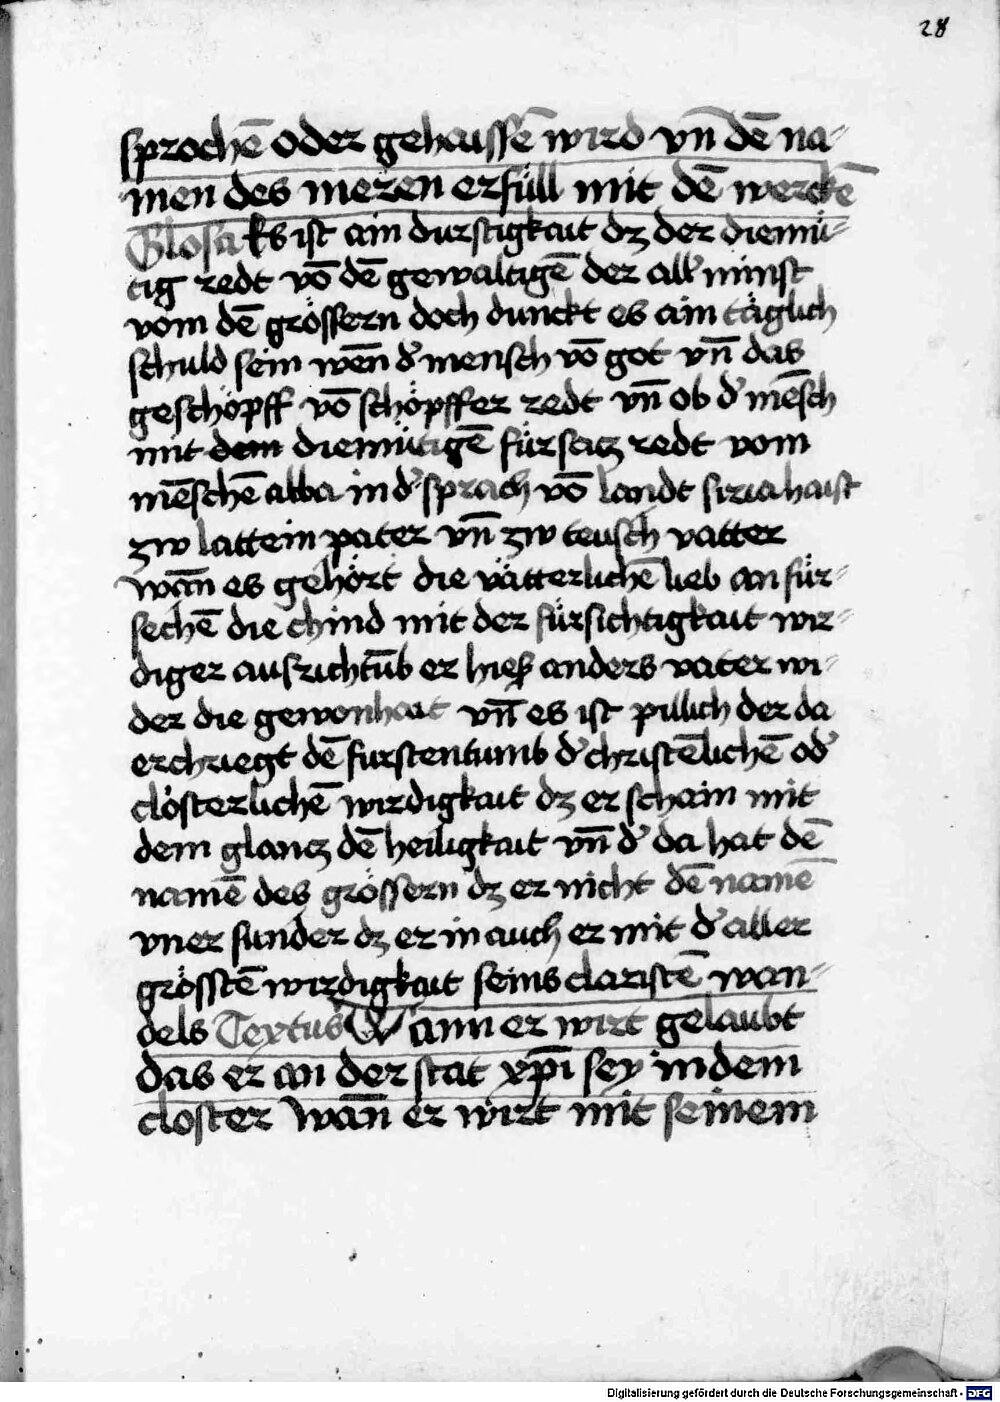 28
sprochē oder gehaissē wird vn̄ dē na-
men des merēn erfüll mit dē werckē
Glosa Es ist ain durstigkait dz der diemü-
tig redt vō dē gewaltigē der all' minst
vom dē grössern doch dunckt es ain täglich
schuld sein wēn d' mensch vō got vn̄ das
geschöpff vō schöpffer redt vn̄ ob d' mēsch
mit dem diemütigē fürsatz redt vom
mēschē abba in d' sprach vō landt siria haist
zw lattein pater vn̄ zw teusch vatter
wān es gehört die vätterlichē lieb an für-
sechē die chind mit der fürsichtigkait wir-
diger aufrichtūb er hieß anders vater wi-
der die gewonhait vn̄ es ist pillich der da
erchriegt dē furstentumb d' christēlichē od'
clösterlichē wirdigkait dz er schein mit
dem glantz dē heiligkait vn̄ d' da hat dē
namē des grössern dz er nicht dē namē
vner sunder dz er in auch er mit d' aller
grösstē wirdigkait seins claristē wan-
dels Textus Wann er wirt gelaubt
das er an der stat xp̄i sey in dem
closter wān er wirt mit seinem
Digitalisierung gefördert durch die Deutsche Forschungsgemeinschaft - DFG